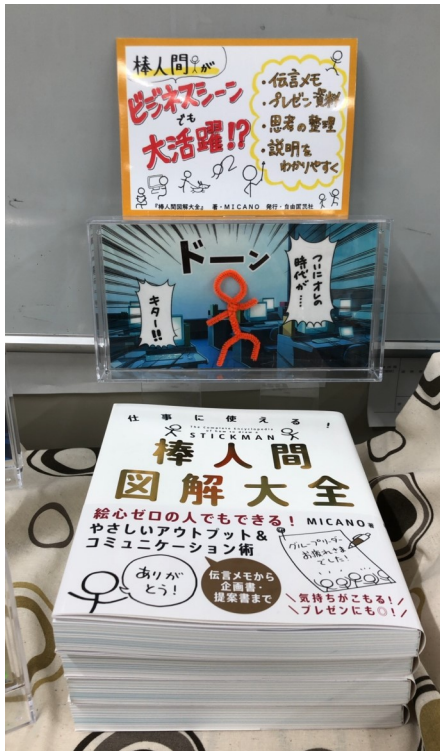 棒人間が
ビジネスシーン
でも
大活躍!?
・伝言メモ
・プレゼン資料
・思考の整理
・説明を
わかりやすく
『棒人間図解大全』 著・MICANO 発行・自由国民社
ドーン
ついにオレの
時代が…
キター!!
仕事に使える!
The Complete Encyclopedia
of how to draw a
STICKMAN
棒人間
図解大全
絵心ゼロの人でもできる!
MICANO 著
やさしいアウトプット&
コミュニケーション術
グループリーダー
お疲れさま
でした!
ありが
とう!
伝言メモから
企画書・
提案書まで
気持ちがこもる!
プレゼンにも◎!